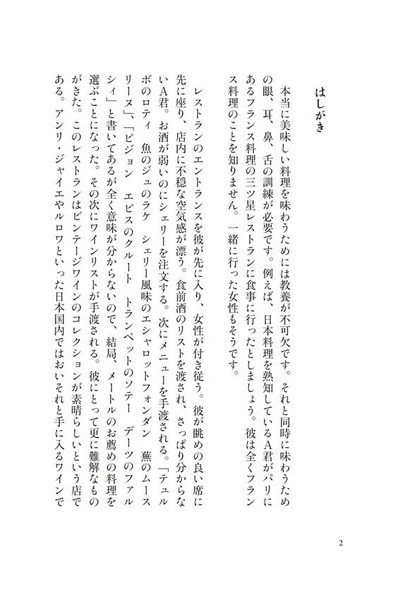 はしがき
本当に美味しい料理を味わうためには教養が不可欠です。それと同時に味わうため
の眼、耳、鼻、舌の訓練が必要です。例えば、日本料理を熟知しているA君がパリに
あるフランス料理の三ツ星レストランに食事に行ったとしましょう。彼は全くフラン
ス料理のことを知りません。一緒に行った女性もそうです。
レストランのエントランスを彼が先に入り、女性が付き従う。彼が眺めの良い席に
先に座り、店内に不穏な空気感が漂う。食前酒のリストを渡され、さっぱり分からな
いA君。お酒が弱いのにシェリーを注文する。次にメニューを手渡される。「テュル
ボのロティ 魚のジュのラケ シェリー風味のエシャロットフォンダン 蕪のムース
リーヌ」、「ピジョン エピスのクルート トランペットのソテー デーツのファル
シィ」と書いてあるが全く意味が分からないので、結局、メートルのお薦めの料理を
選ぶことになった。その次にワインリストが手渡される。彼にとって更に難解なもの
がきた。このレストランはビンテージワインのコレクションが素晴らしいという店で
ある。アンリ・ジャイエやルロワといった日本国内ではおいそれと手に入るワインで
2